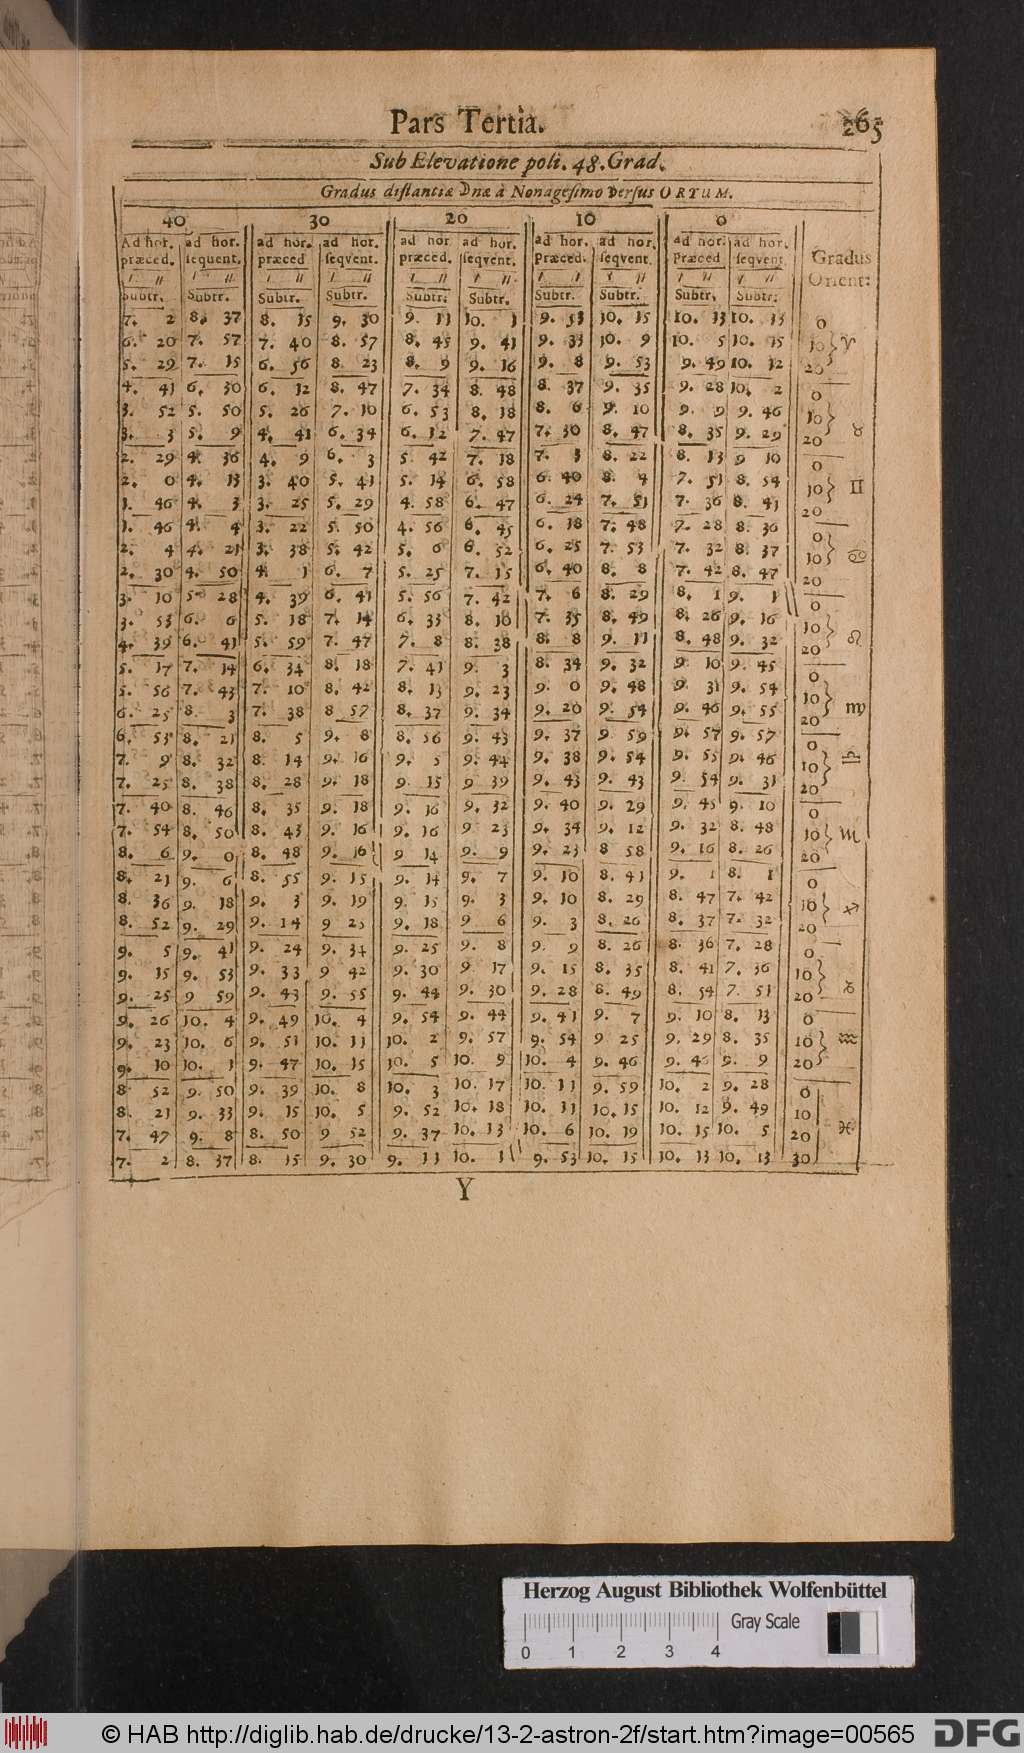 Pars Tertia. 265
Sub Elevatione poli. 48. Grad.
Gradus distantiæ Dnæ à Nonagesimo versus ORTUM.
40 30 20 10 0
Ad hor. ad hor. ad hor. ad hor. ad hor ad hor. ad hor. ad hor. ad hor. ad hor. Gradus
præced. sequent. præced seqvent. præced. seqvent. Præced. seqvent. Præced seqvent. Orient:
ı ıı ı ıı ı ıı ı ıı ı ıı ı ıı ı ıı ı ıı ı ıı ı ıı
Subtr. Subtr. Subtr. Subtr. Subtr. Subtr. Subtr. Subtr. Subtr. Subtr.
7. 2 8. 37 8. 15 9. 30 9. 11 10. 1 9. 53 10. 15 10. 13 10. 13 0
6. 20 7. 57 7. 40 8. 57 8. 45 9. 41 9. 33 10. 9 10. 5 10. 15 10 ♈
5. 29 7. 15 6. 56 8. 23 8. 9 9. 16 9. 8 9. 53 9. 49 10. 12 20
4. 41 6. 30 6. 12 8. 47 7. 34 8. 48 8. 37 9. 35 9. 28 10. 2 0
3. 52 5. 50 5. 26 7. 10 6. 53 8. 18 8. 6 9. 10 9. 9 9. 46 10 ♉
3. 3 5. 9 4. 41 6. 34 6. 12 7. 47 7. 30 8. 47 8. 35 9. 29 20
2. 29 4. 36 4. 9 6. 3 5. 42 7. 18 7. 3 8. 22 8. 13 9 10 0
2. 0 4. 13 3. 40 5. 41 5. 14 6. 58 6. 40 8. 4 7. 51 8. 54 10 ♊
1. 46 4. 3 3. 25 5. 29 4. 58 6. 47 6. 24 7. 51 7. 36 8. 41 20
1. 46 4. 4 3. 22 5. 50 4. 56 6. 45 6. 18 7. 48 7. 28 8. 36 0
2. 4 4. 21 3. 38 5. 42 5. 6 6. 52 6. 25 7. 53 7. 32 8. 37 10 ♋
2. 30 4. 50 4. 1 6. 7 5. 25 7. 15 6. 40 8. 8 7. 42 8. 47 20
3. 10 5. 28 4. 39 6. 41 5. 56 7. 42 7. 6 8. 29 8. 1 9. 1 0
3. 53 6. 6 5. 18 7. 14 6. 33 8. 10 7. 35 8. 49 8. 26 9. 16 10 ♌
4. 39 6. 41 5. 59 7. 47 7. 8 8. 38 8. 8 9. 11 8. 48 9. 32 20
5. 17 7. 14 6. 34 8. 18 7. 41 9. 3 8. 34 9. 32 9. 10 9. 45 0
5. 56 7. 43 7. 10 8. 42 8. 13 9. 23 9. 0 9. 48 9. 31 9. 54 10 ♍
6. 25 8. 3 7. 38 8 57 8. 37 9. 34 9. 20 9. 54 9. 46 9. 55 20
6. 53 8. 21 8. 5 9. 8 8. 56 9. 43 9. 37 9. 59 9. 57 9. 57 0
7. 9 8. 32 8. 14 9. 16 9. 5 9. 44 9. 38 9. 54 9. 55 9. 46 10 ♎
7. 25 8. 38 8. 28 9. 18 9. 15 9 39 9. 43 9. 43 9. 54 9. 31 20
7. 40 8. 46 8. 35 9. 18 9. 16 9. 32 9. 40 9. 29 9. 45 9. 10 0
7. 54 8. 50 8. 43 9. 16 9. 16 9 23 9. 34 9. 12 9. 32 8. 48 10 ♏
8. 6 9. 0 8. 48 9. 16 9 14 9. 9 9. 23 8 58 9. 16 8. 26 20
8. 21 9. 6 8. 55 9. 15 9. 14 9. 7 9. 10 8. 41 9. 1 8. 1 0
8. 36 9. 18 9. 3 9. 19 9. 15 9. 3 9. 10 8. 29 8. 47 7. 42 10 ♐
8. 52 9. 29 9. 14 9 25 9. 18 9 6 9. 3 8. 26 8. 37 7. 32 20
9. 5 9. 41 9. 24 9. 34 9. 25 9. 8 9. 9 8. 26 8. 36 7. 28 0
9. 15 9. 53 9. 33 9 42 9. 30 9 17 9. 15 8. 35 8. 41 7. 36 10 ♑
9. 25 9 59 9. 43 9. 55 9. 44 9. 30 9. 28 8. 49 8. 54 7. 51 20
9. 26 10. 4 9. 49 10. 4 9. 54 9. 44 9. 41 9. 7 9. 10 8. 13 0
9. 23 10. 6 9. 51 10. 11 10. 2 9. 57 9. 54 9 25 9. 29 8. 35 10 ♒
9. 10 10. 1 9. 47 10. 15 10. 5 10. 9 10. 4 9. 46 9. 46 9. 9 20
8 52 9. 50 9. 39 10. 8 10. 3 10. 17 10. 11 9. 59 10. 2 9. 28 0
8. 21 9. 33 9. 15 10. 5 9. 52 10. 18 10. 11 10. 15 10. 12 9. 49 10
7. 47 9. 8 8. 50 9 52 9. 37 10. 13 10. 6 10. 19 10. 15 10. 5 20 ♓
7. 2 8. 37 8. 15 9. 30 9. 11 10. 1 9. 53 10. 15 10. 13 10. 13 30
Y
Herzog August Bibliothek Wolfenbüttel
Gray Scale
0 1 2 3 4
© HAB http://diglib.hab.de/drucke/13-2-astron-2f/start.htm?image=00565
DFG